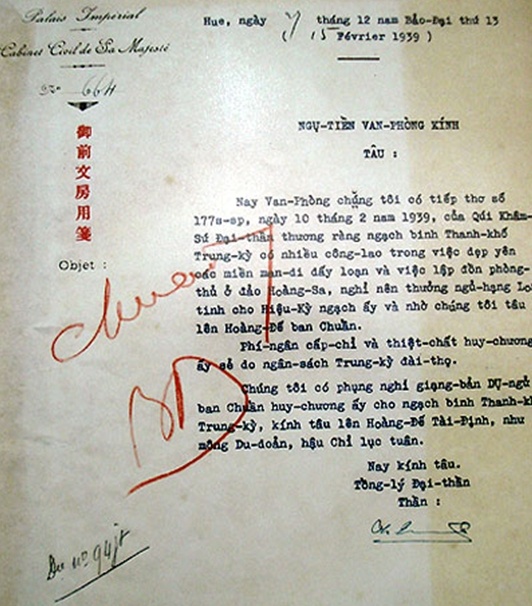 Palais Impérial
Cabinet Civil de Sa Majesté
No 664
御前文房用箋
Objet :
Hue, ngày 7 tháng 12 nam Bảo-Đại thứ 13
( 15 Février 1939 )
NGỰ-TIỀN VAN-PHÒNG KÍNH
TÂU :
Nay Van-Phòng chúng tôi có tiếp thơ số
177s-sp, ngày 10 tháng 2 nam 1939, của Qúi Khâm-
Sứ Đại-thần thương ràng ngạch binh Thanh-khố
Trung-kỳ có nhiều công-lao trong việc dẹp yên
các miền man-di dấy loạn và việc lập đồn phòng-
thủ ở đảo Hoàng-Sa, nghỉ nên thưởng ngủ-hạng Lo
tinh cho Hiệu-Kỳ ngạch ấy và nhờ chúng tôi tâu
lên Hoàng-Đế ban Chuẩn.
Phí-ngân cấp-chỉ và thiệt-chất huy-chương
ấy sẻ do ngân-sách Trung-kỳ đài-thọ.
Chúng tôi có phụng nghỉ giạng-bản DỤ-ngủ
ban Chuẩn huy-chương ấy cho ngạch binh Thanh-kh
Trung-kỳ, kính tâu lên Hoàng-Đế Tài-Định, như
mông Du-doản, hậu Chỉ lục tuân.
Nay kính tâu.
Tổng-lý Đại-thần
Thần :
Chuẩn
BĐ
Du no 94jt